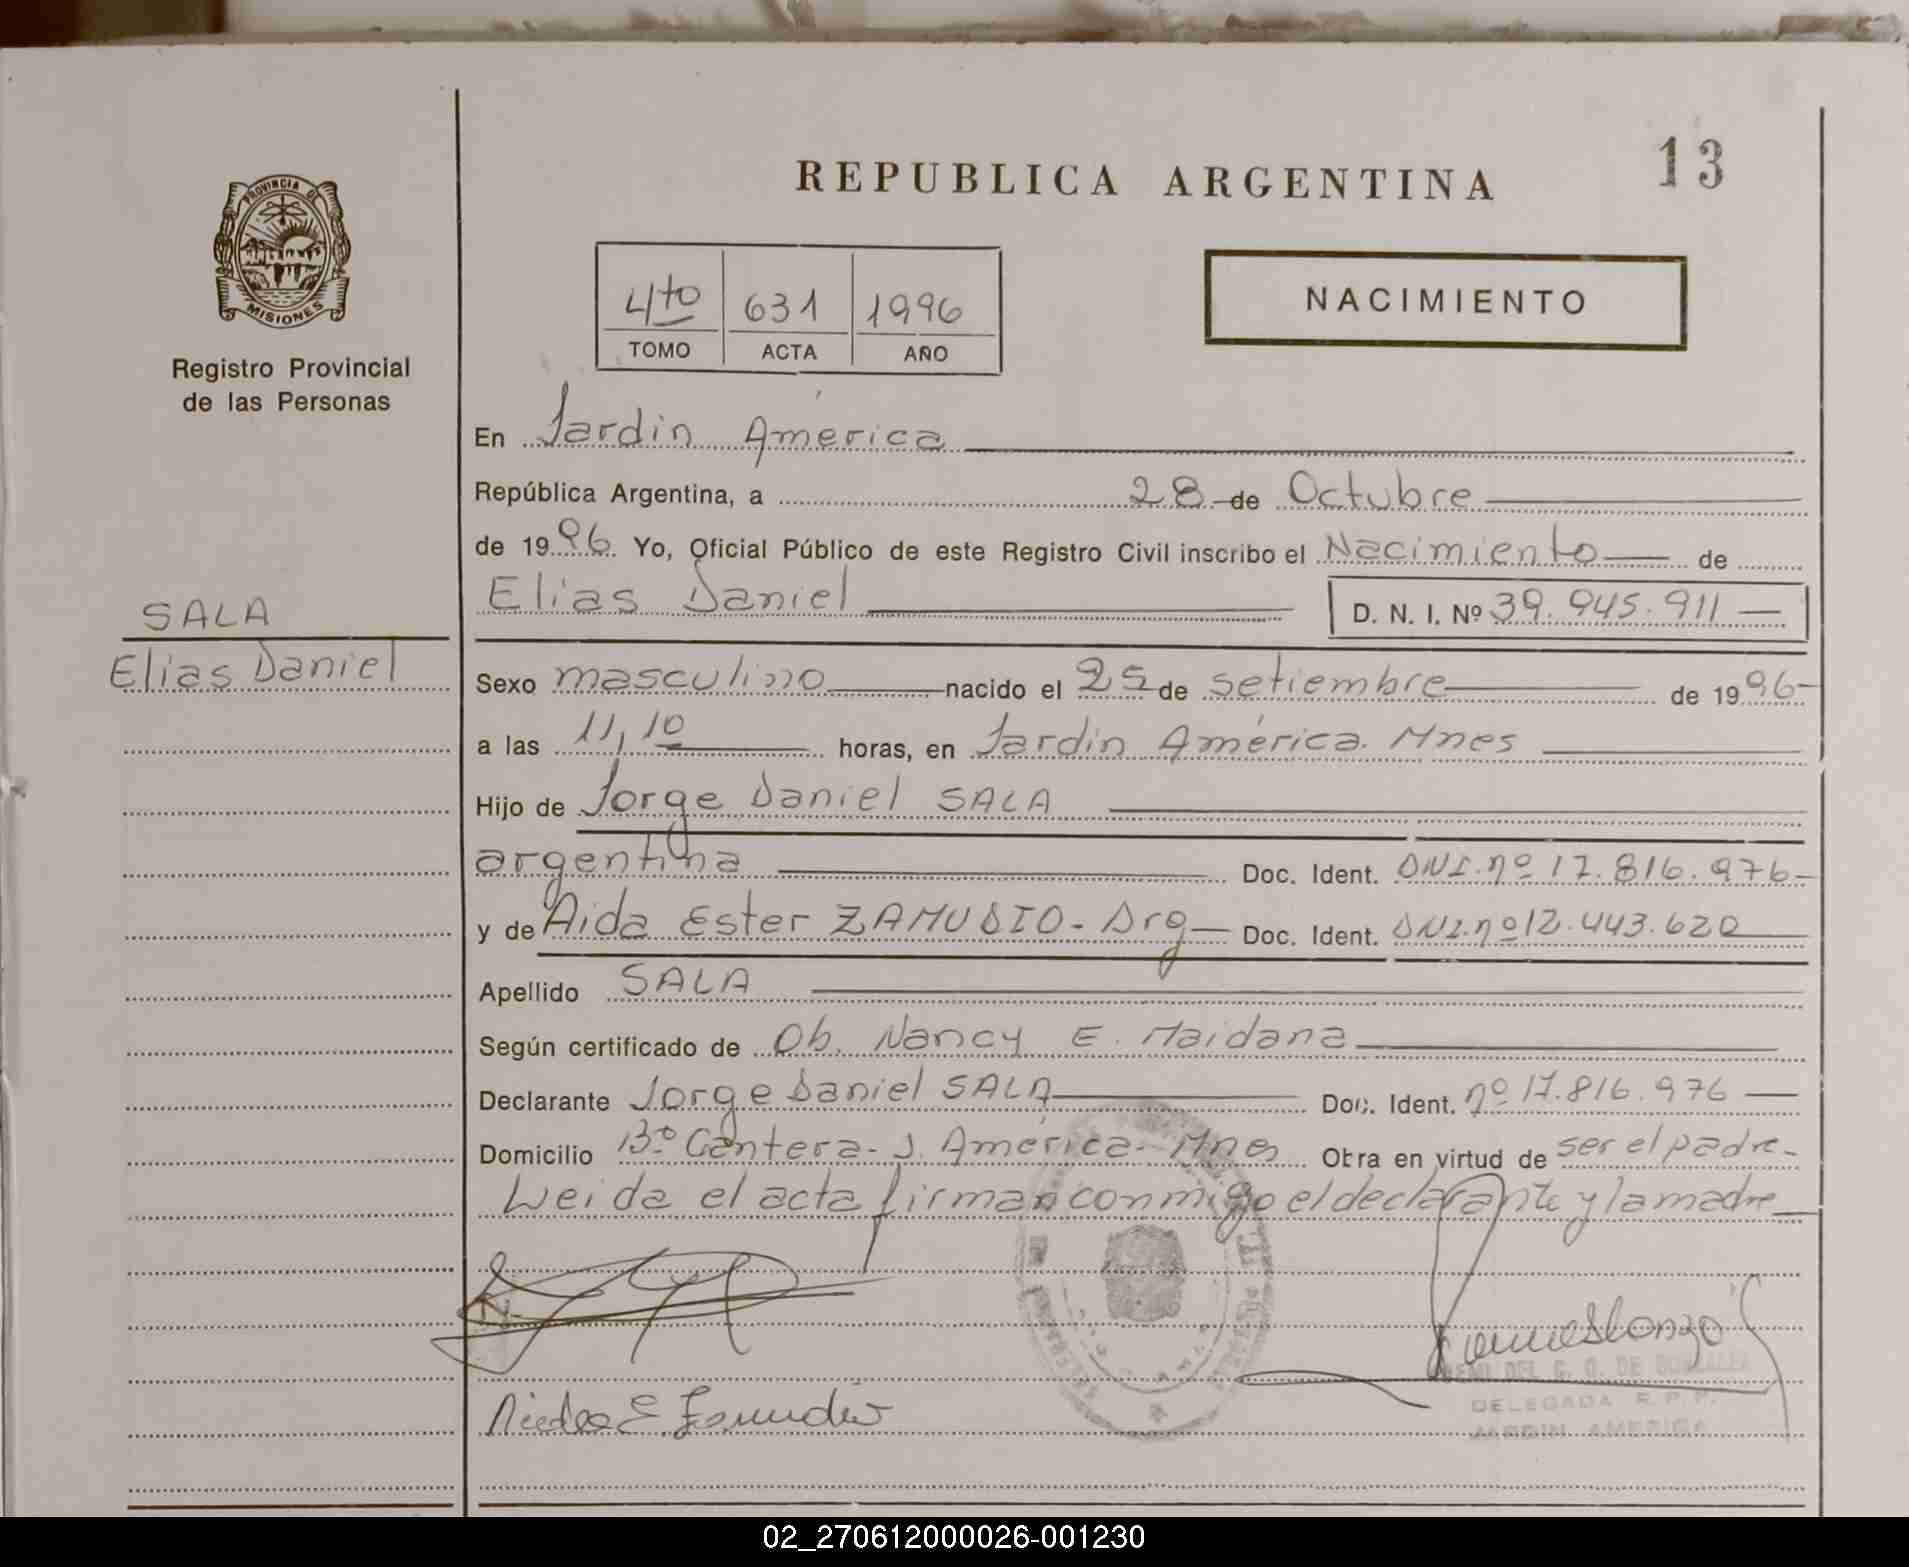 REPUBLICA ARGENTINA
13
PROVINCIA DE
MISIONES
Registro Provincial
de las Personas
4to 631 1996
TOMO ACTA AÑO
NACIMIENTO
En Jardín América
República Argentina, a 28 de Octubre
de 1996. Yo, Oficial Público de este Registro Civil inscribo el Nacimiento de
Elias Daniel D. N. I. Nº 39.945.911
SALA
Elias Daniel
Sexo masculino nacido el 25 de setiembre de 1996
a las 11,10 horas, en Jardín América. Mnes
Hijo de Jorge Daniel SALA
argentina Doc. Ident. DNI. nº 17.816.976
y de Aida Ester ZAMUDIO - Arg Doc. Ident. DNI. nº 12.443.620
Apellido SALA
Según certificado de Ob. Nancy E. Maidana
Declarante Jorge Daniel SALA Doc. Ident. nº 17.816.976
Domicilio Bº Cantera - J. América - Mnes Obra en virtud de ser el padre
Leida el acta firman conmigo el declarante y la madre
DELEGADA R. P. P.
JARDIN AMERICA
02_270612000026-001230